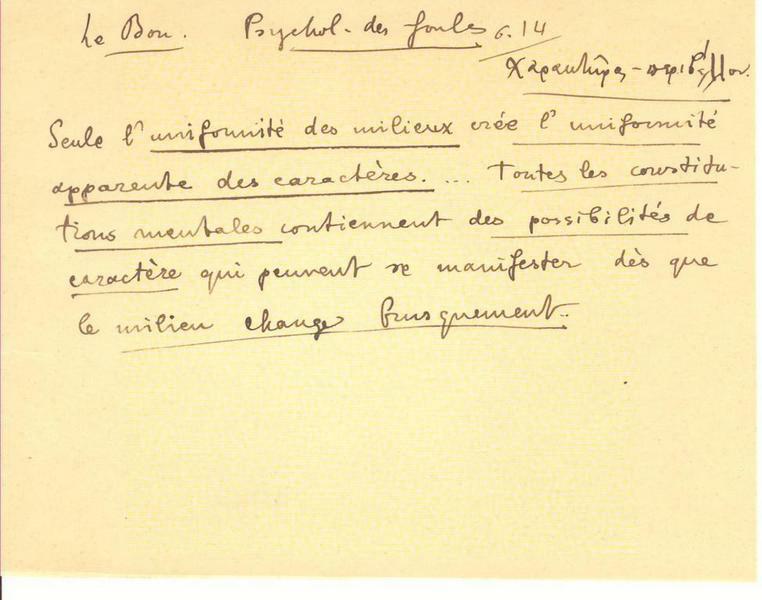 Le Bon. Psychol. des foules σ. 14
Χαρακτήρας - περιβάλλον.
Seule l'uniformité des milieux crée l'uniformité
apparente des caractères. ... Toutes les constitu-
tions mentales contiennent des possibilités de
caractère qui peuvent se manifester dès que
le milieu change brusquement..